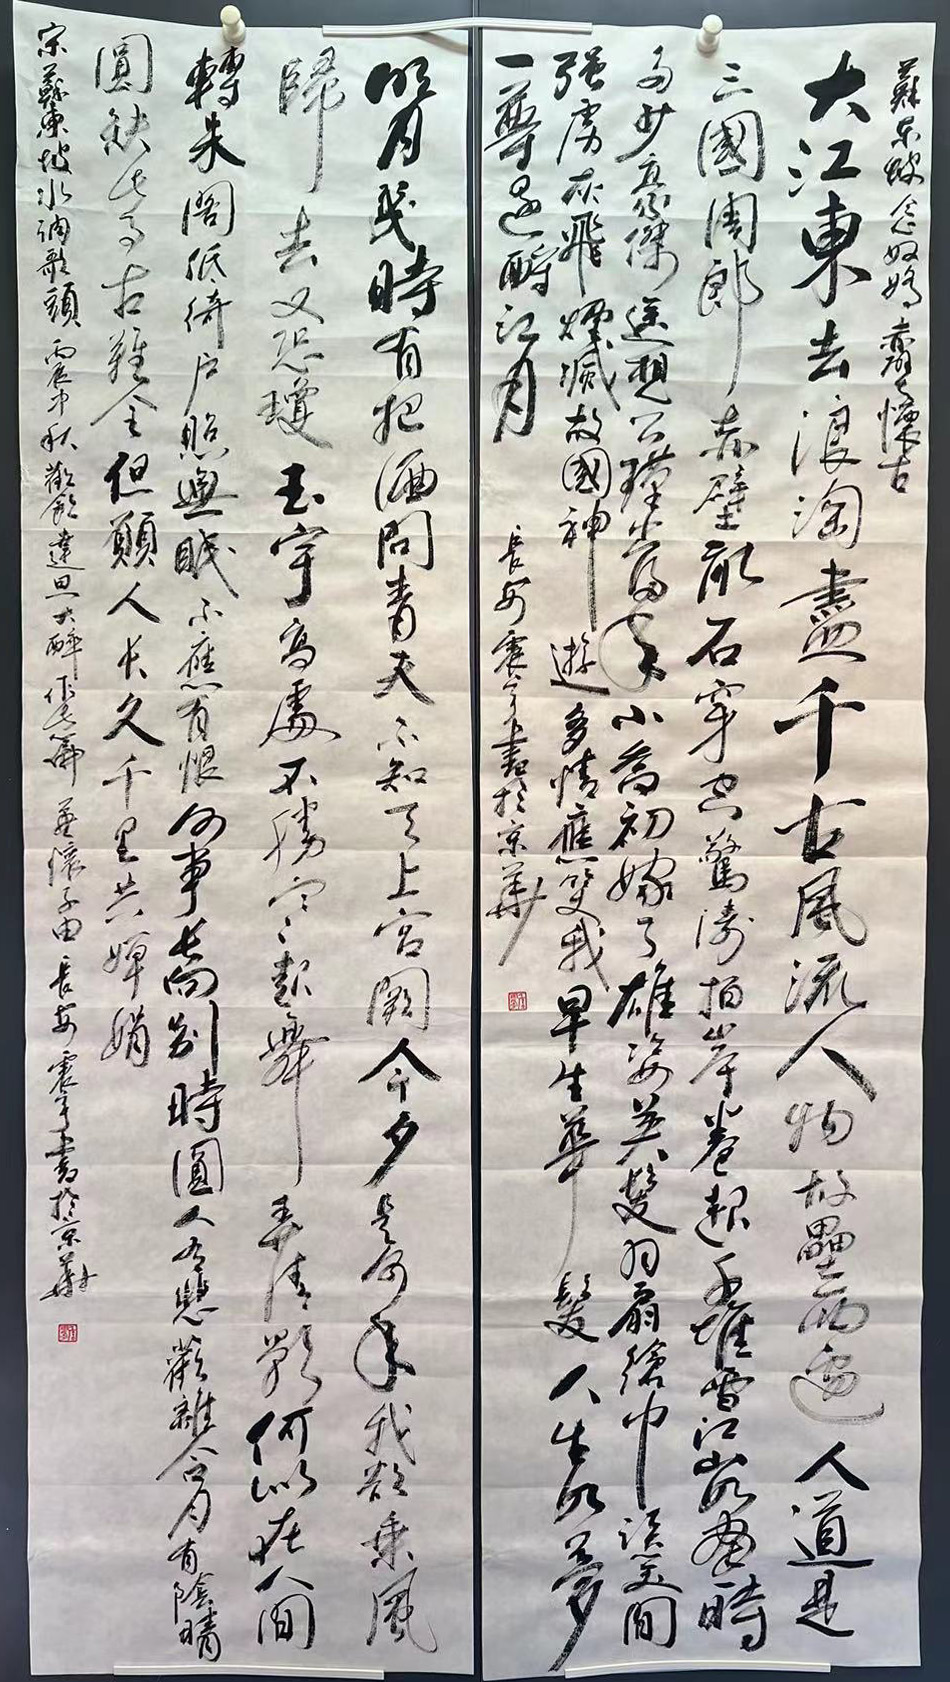 蘇東坡念奴嬌赤壁懷古
大江東去浪淘盡千古風流人物故壘西邊人道是
三國周郎赤壁亂石穿空驚濤拍岸卷起千堆雪江山如畫一時
多少豪傑遙想公瑾當年小喬初嫁了雄姿英發羽扇綸巾談笑間
強虜灰飛煙滅故國神遊多情應笑我早生華髮人生如夢
一尊還酹江月
長安震亨書於京華
明月幾時有把酒問青天不知天上宮闕今夕是何年我欲乘風
歸去又恐瓊玉宇高處不勝寒起舞弄清影何似在人間
轉朱閣低綺户照無眠不應有恨何事長向別時圓人有悲歡離合月有陰晴
圓缺此事古難全但願人長久千里共嬋娟
宋蘇東坡水調歌頭丙辰中秋歡飲達旦大醉作此篇兼懷子由長安震亨書於京華